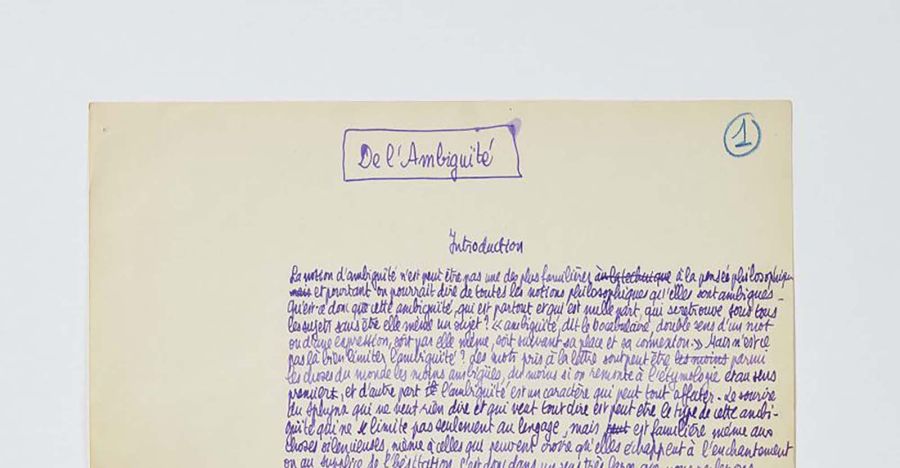 1
De l'Ambiguïté
Introduction
La notion d'ambiguïté n'est peut être pas une des plus familières à la technique à la pensée philosophique
mais et pourtant on pourrait dire de toutes les notions philosophiques qu'elles sont ambigues.
Qu'est-ce donc que cette ambiguïté, qui est partout et qui est nulle part, qui se retrouve sous tous
les sujets sans être elle même un sujet? « ambiguité, dit le vocabulaire, double sens d'un mot
ou d'une expression, soit par elle même, soit suivant sa place et sa connexion.» Mais n'est ce
pas là bien limiter l'ambiguïté? Les mots pris à la lettre sont peut être les moins parmi
les choses du monde les moins ambigües, du moins si on remonte à l'étymologie et au sens
premier, et d'autre part l'ambiguité est un caractère qui peut tout affecter. Le sourire
du sphynx qui ne veut rien dire et qui veut tout dire est peut être le type de cette ambi-
guité qui ne se limite pas seulement au langage, mais est familière même aux
choses silencieuses, même à celles qui peuvent croire qu'elles échappent à l'enchantement
ou au supplice de l'hésitation. c'est donc dans un sens très large que nous